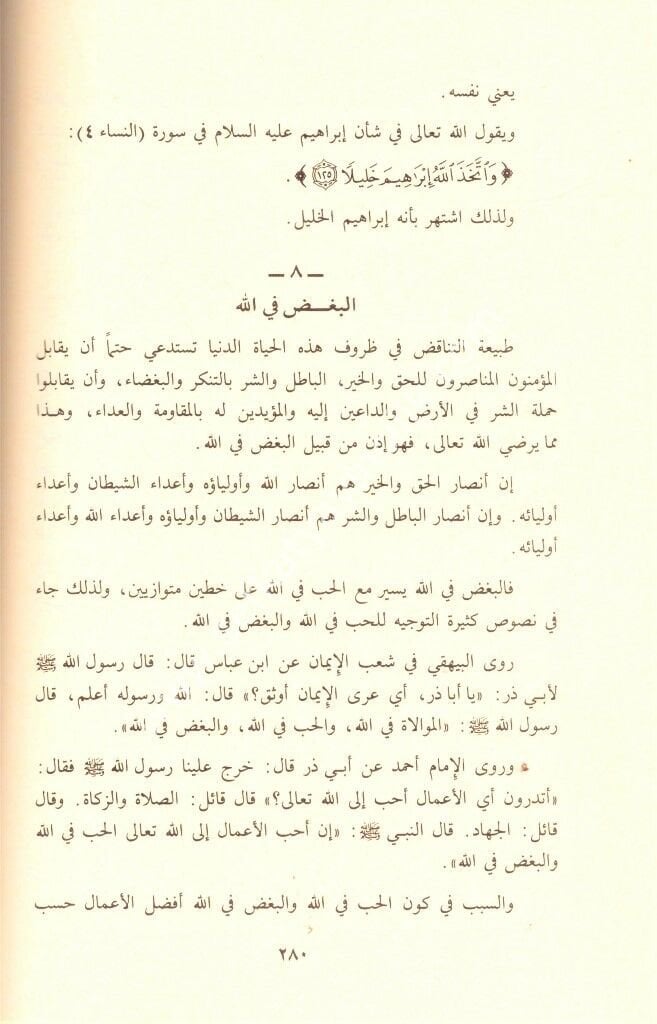 يعني نفسه.
ويقول الله تعالى في شأن إبراهيم عليه السلام في سورة (النساء ٤):
﴿وَٱتَّخَذَ ٱللَّهُ إِبْرَٰهِيمَ خَلِيلًا ١٢٥﴾.
ولذلك اشتهر بأنه إبراهيم الخليل.
— ٨ —
البغــض في الله
طبيعة التناقض في ظروف هذه الحياة الدنيا تستدعي حتماً أن يقابل
المؤمنون المناصرون للحق والخير، الباطل والشر بالتنكر والبغضاء، وأن يقابلوا
حملة الشر في الأرض والداعين إليه والمؤيدين له بالمقاومة والعداء، وهـذا
مما يرضي الله تعالى، فهو إذن من قبيل البغض في الله.
إن أنصار الحق والخير هم أنصار الله وأولياؤه وأعداء الشيطان وأعداء
أوليائه. وإن أنصار الباطل والشر هم أنصار الشيطان وأولياؤه وأعداء الله وأعداء
أوليائه.
فالبغض في الله يسير مع الحب في الله على خطين متوازيين، ولذلك جاء
في نصوص كثيرة التوجيه للحب في الله والبغض في الله.
روى البيهقي في شعب الإيمان عن ابن عباس قال: قال رسول الله ﷺ
لأبـي ذر: «يا أبا ذر، أي عرى الإيمان أوثق؟» قال: الله ورسوله أعلم، قال
رسول الله ﷺ: «الموالاة في الله، والحب في الله، والبغض في الله».
وروى الإمام أحمد عن أبـي ذر قال: خرج علينا رسول الله ﷺ فقال:
«أتدرون أي الأعمال أحب إلى الله تعالى؟» قال قائل: الصلاة والزكاة. وقال
قائل: الجهاد. قال النبـي ﷺ: «إن أحب الأعمال إلى الله تعالى الحب في الله
والبغض في الله».
والسبب في كون الحب في الله والبغض في الله أفضل الأعمال حسب
٢٨٠